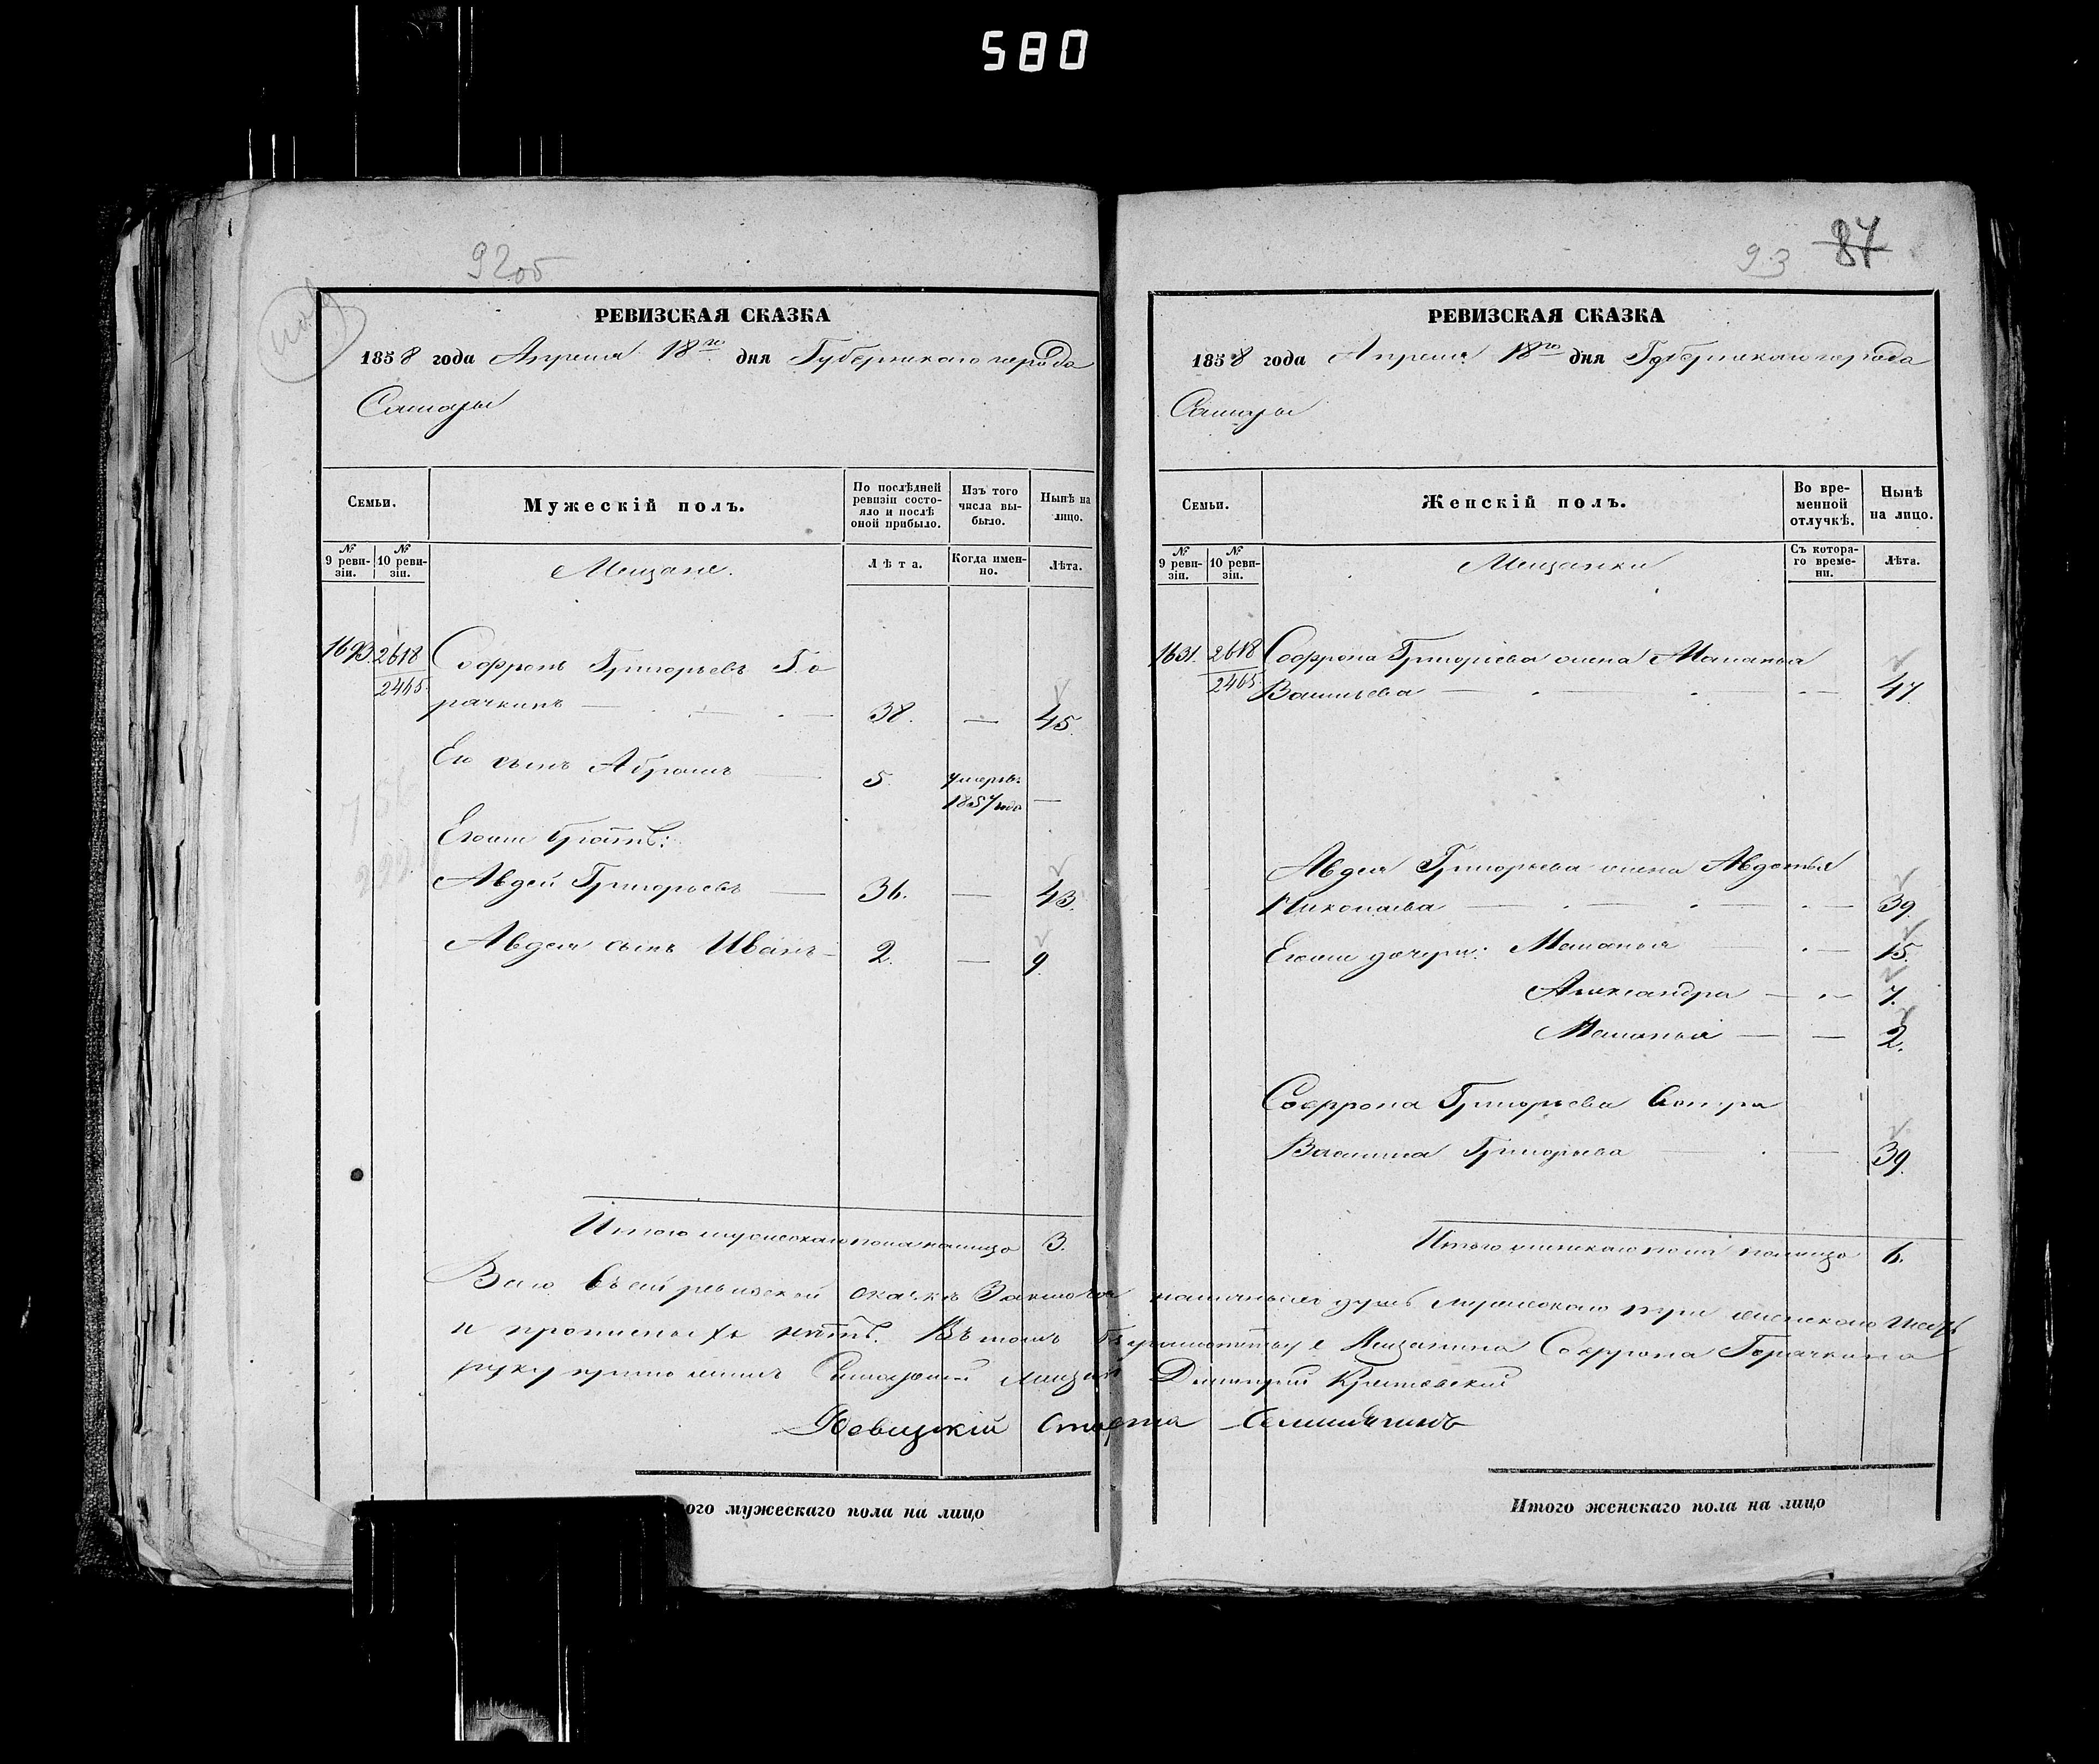 580
92об
РЕВИЗСКАЯ СКАЗКА
1858 года Апреля 18го дня Губернскаго города
Самары
Семьи.
Мужескій полъ.
По послѣдней ревизіи состо-
яло и послѣ
оной прибыло.
Изъ того
числа вы-
было.
Нынѣ на
лицо.
№
9 реви-
зіи.
№
10 реви-
зіи.
Мещане.
Лѣта.
Когда имен-
но.
Лѣта.
1693. 2618 Софронъ Григорьевъ Го
2465.
рачкинъ 38. 45.
Его сынъ Абрамъ 5. умеръ
1857 года
Егоже братъ:
Авдей Григорьевъ 36. 43.
Авдея сынъ Иванъ 2. 9.
Итого мужескаго пола налицо 3.
93 87
РЕВИЗСКАЯ СКАЗКА
1858 года Апреля 18го дня Губернскаго города
Самары
Семьи.
Женскій полъ.
Во вре-
менной
отлучкѣ.
Нынѣ
на лицо.
№
9 реви-
зіи.
№
10 реви-
зіи.
Мещанки
Съ котора-
го време-
ни.
Лѣта.
1631. 2618 Софрона Григорьева жена Маланья
2465. Васильева 47.
Авдея Григорьева жена Авдотья
Николаева 39.
Егоже дочери: Маланья 15.
Александра 7.
Маланья 2.
Софрона Григорьева сестра
Василиса Григорьева 39.
Итого женскаго пола налицо 6.
Всего въ сей ревизской сказкѣ наличныхъ душъ мужескаго три женскаго шесть
и прописныхъ нѣтъ. Въ томъ Мещанина Софрона Горачкина
руку приложилъ Самарский мещан Димитрий
староста
Итого мужескаго пола на лицо
Итого женскаго пола на лицо